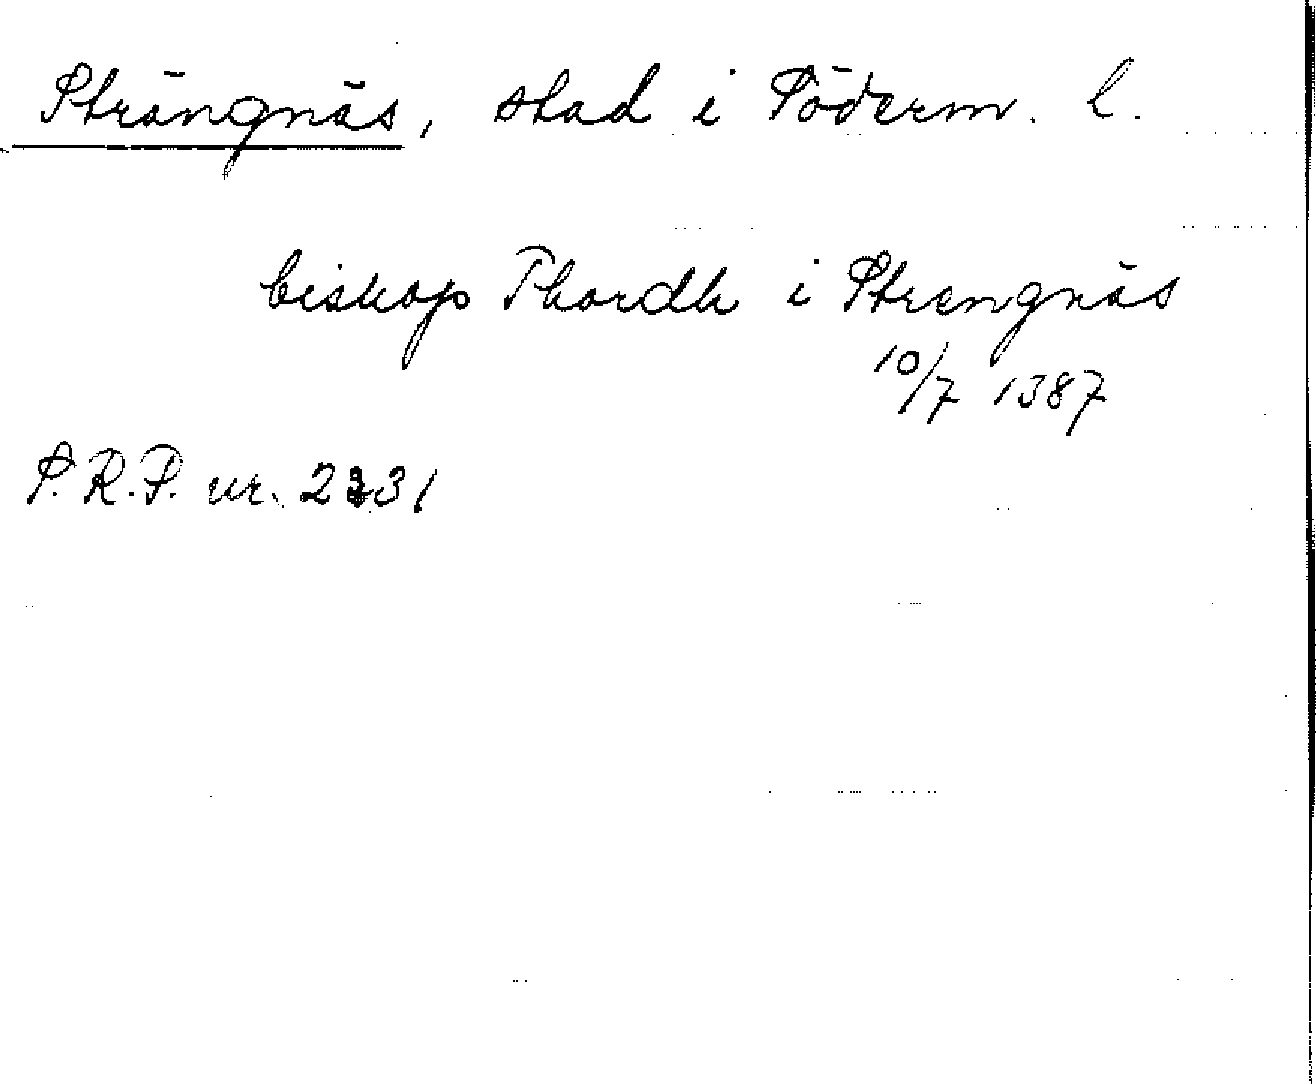 Strängnäs, stad i Söderm. l.
biskop Thordh i Strengnäs
10/7 1387
S.R.P. nr. 2331